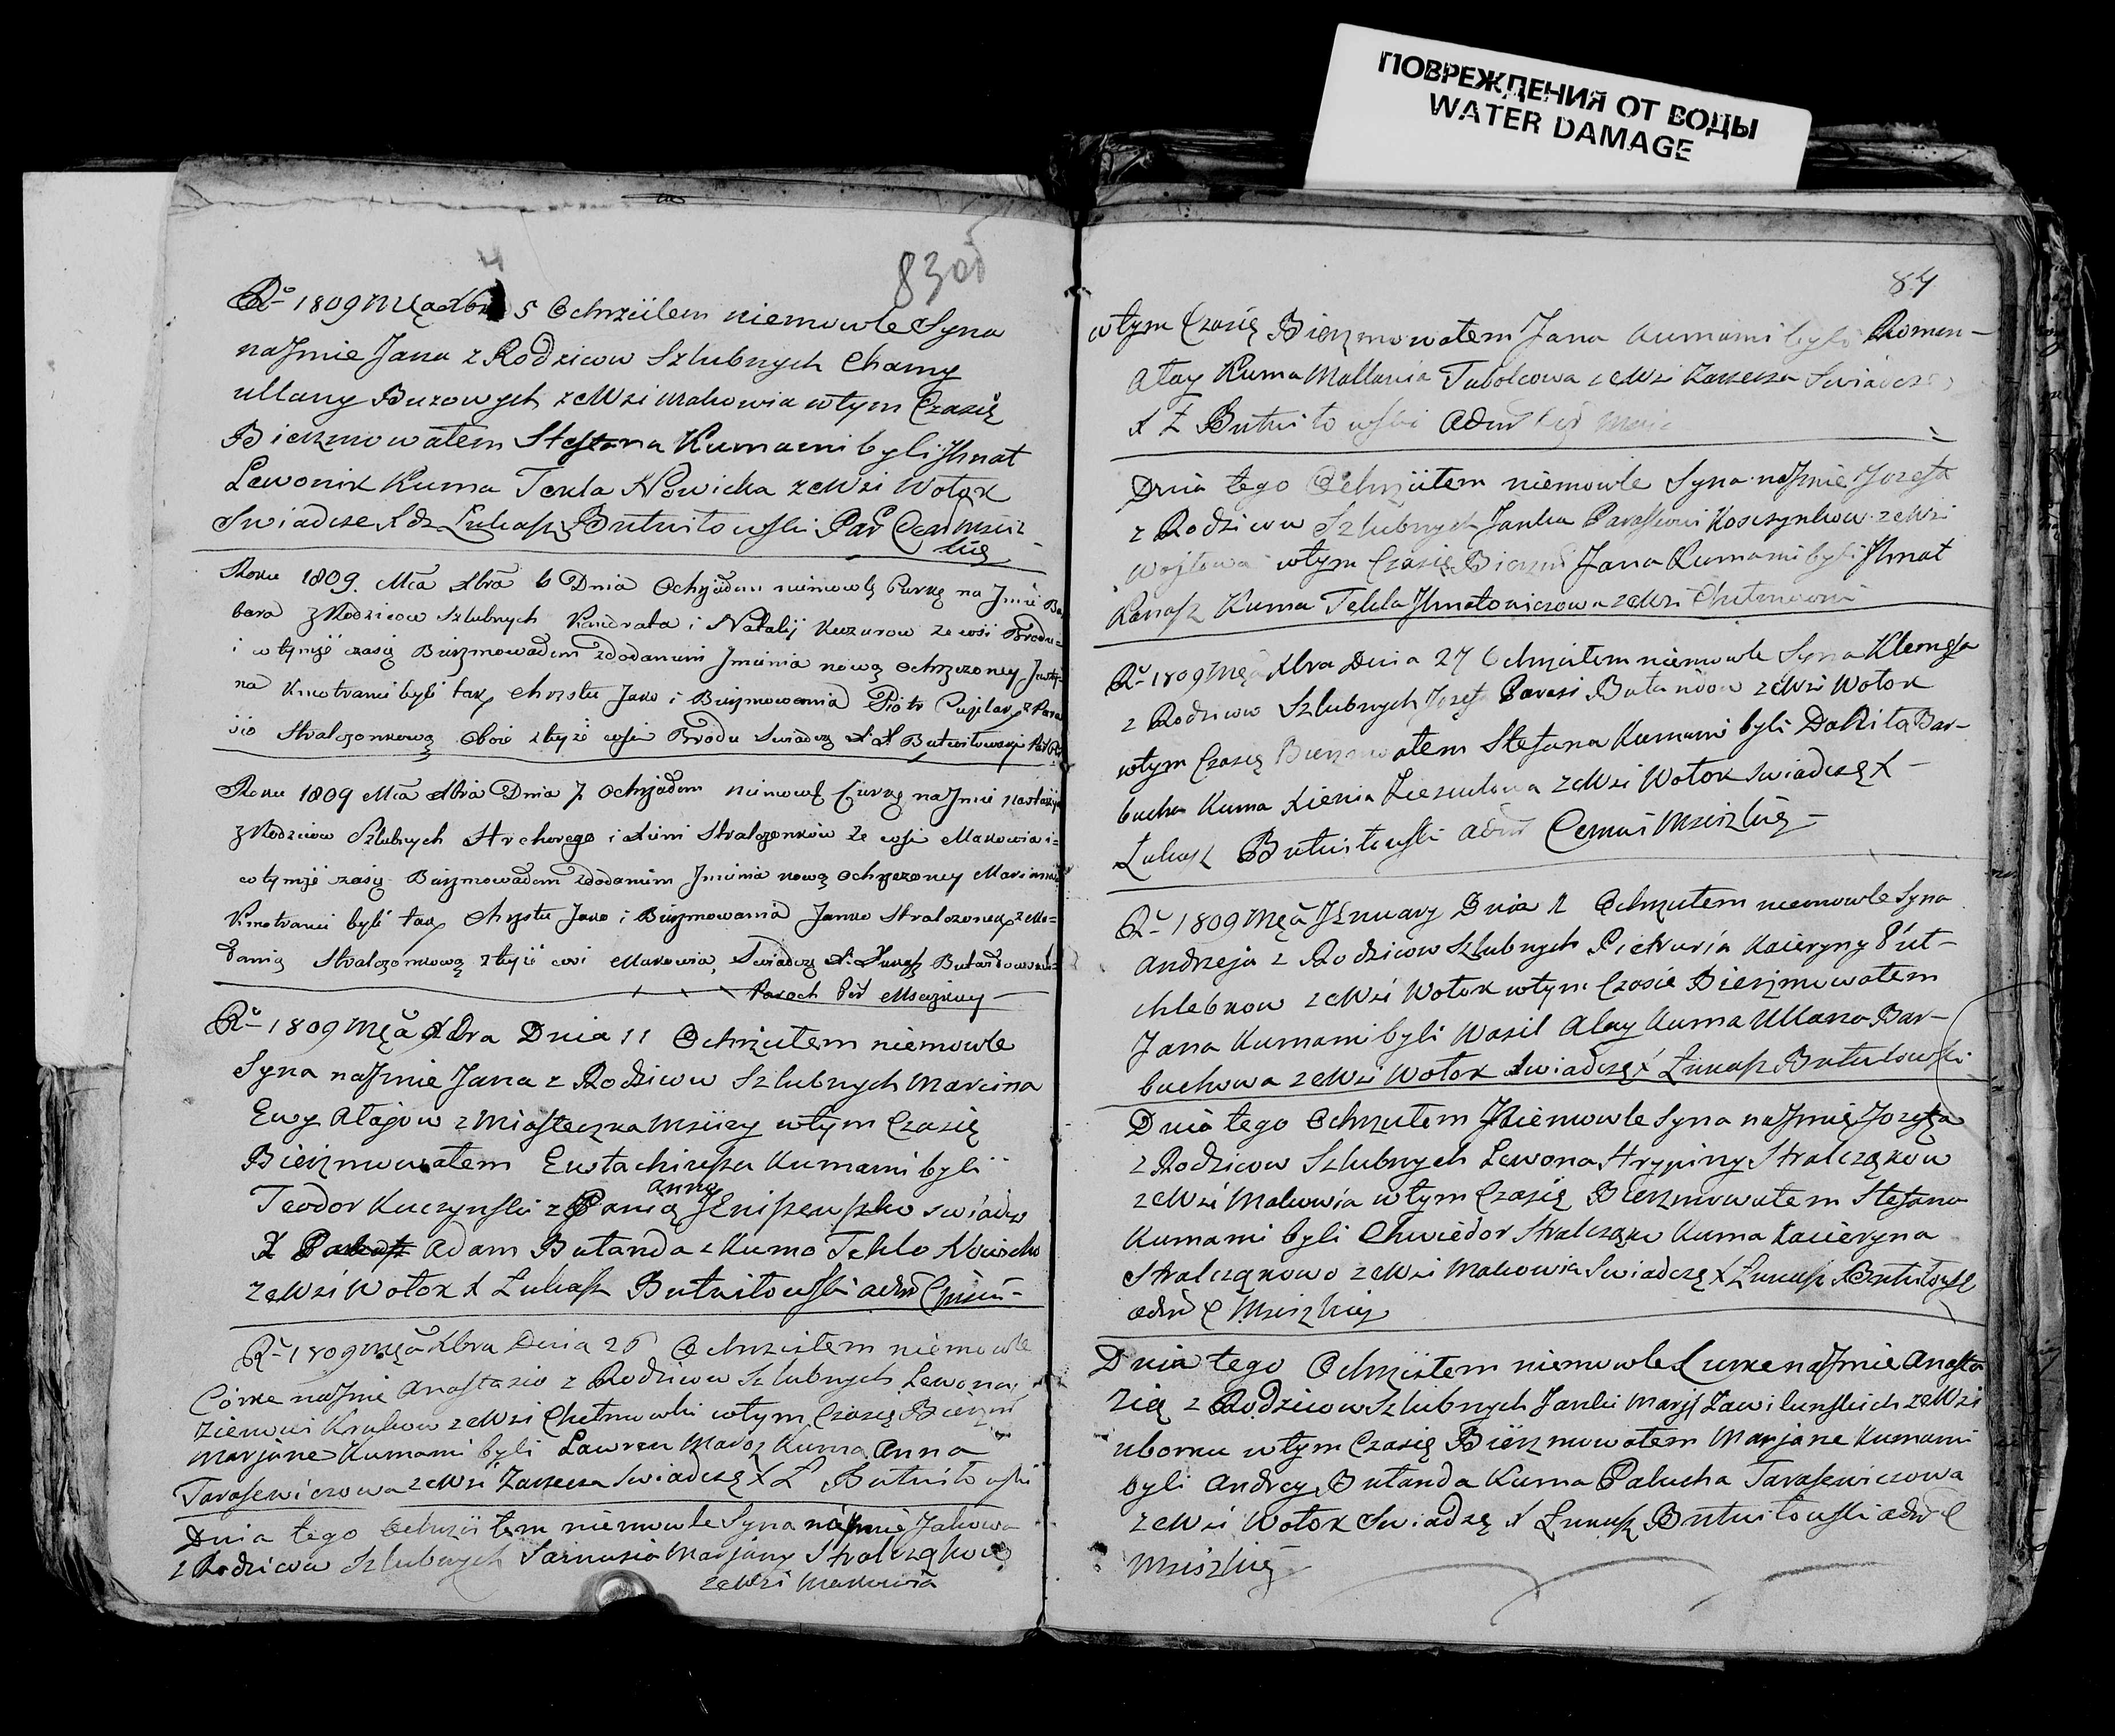 ПОВРЕЖДЕНИЯ ОТ ВОДЫ
WATER DAMAGE
4
83 об
Rº 1809 Mça Xbra 5 Ochrziłem niemowle Syna
na Jmie Jana z Rodzicow Szlubnych Chamy
ullany Buzowych ze Wsi Makowia w tym Czasię
Bierzmowałem Stefana Kumami byli Jhnat
Lewonik Kuma Tekla Nowicka ze Wsi Wołok
Swiadcze X dz Lukasz Butwiłowski Par Cer Msciz
kię
Roku 1809. Mca Xbrà 6 Dnia Ochrzciłem niemowlę Curkę na Jmie Ba
bara z Rodzicow Szlubnych Kondrata i Natalij Kuzurow ze wsi Brodu
i w tymże czasię Bierzmowałem z dodaniem Jmienia nowo Ochrzczoney Justy-
na Kmotrami byli tak Chrztu Jako i Bierzmowania Piotr
Stralczonkową Oboie z tyże wsi Brodu Swiadczę X. Ł. Butwiłowski
Roku 1809 Mca Xbra Dnia 7 Ochrzciłem niemowlę Curkę na Jmie Nastazyę
z Rodzicow Szlubnych Hrehorego i Stralczonków ze wsi Makowia i
w tymże czasię Bierzmowałem z dodaniem Jmienia nowo Ochrzczoney Marianna
Kmotrami byli tak Chrztu Jako i Bierzmowania Janko Stralczonek z Me-
łanią Stralczonkową z tyże wsi Makowia, Swiadczę X. Łukasz Butwiłowski
Paroch Msciżkiey
Rº 1809 Mça Xbra Dnia 11 Ochrzciłem niemowle
Syna na Jmie Jana z Rodzicow Szlubnych Marcina
Ewy Ałajow z Miasteczka Msciży w tym Czasię
Bierzmowałem Ewtachiusza Kumami byli
Teodor Kuczynski z Panią Anną swiadcz
X Adam Butanda z Kumo Teklo
ze Wsi Wołok X Lukasz Butwiłowski adm
Rº 1809 Mça Xbra Dnia 26 Ochrzciłem niemowle
Córke na Jmie Anastazio z Rodzicow Szlubnych Lewona
Zienowi Krukow ze Wsi Chełmowki w tym Czasię Bierzm
Marjane Kumami byli Lawren Maroz Kuma Anna
Tarasewiczowa ze Wsi Zarzecza Swiadczę X Ł Butwiłowski
Dnia tego Ochrzciłem niemowle Syna na Jmie Jakowa
z Rodzicow Szlubnych Marjany Stralcząkow
ze Wsi Makowia
84
w tym Czasię Bierzmowałem Jana Kumami byli Roman
Ałay Kuma Mallania Tabolcowa ze Wsi Zarzecza Swiadcze
X Ł Butwiłowski Adm
Dnia tego Ochrzciłem niemowle Syna na Jmie Jozefa
z Rodzicow Szlubnych Janka Paraskewi Kosczynkow ze Wsi
Wojtowa w tym Czasię Bierzm Jana Kumami byli Jhnat
Kuma Tekla Jhnatowiczowa ze Wsi
Rº 1809 Mça Xbra Dnia 27 Ochrzciłem niemowle Syna
z Rodzicow Szlubnych Jozefa Parasi Butandow ze Wsi Wołok
w tym Czasię Bierzmowałem Stefana Kumami byli Daniło Bar-
bucha Kuma Xienia ze Wsi Wołok Swiadczę X
Łukasz Butwiłowski adm Msciszkię
Rº 1809 Mça Jenuary Dnia 1 Ochrzciłem niemowle Syna
Andrzeja z Rodzicow Szlubnych Pietrusia Kacieryny Put-
chlebkow ze Wsi Wołok w tym Czasie Bierzmowałem
Jana Kumami byli Wasil Alay Kuma Ullana Bar-
buchowa ze Wsi Wołok Swiadczę X Łukasz Butwiłowski
Dnia tego Ochrzciłem Niemowle Syna na Jmię Jozefa
z Rodzicow Szlubnych Lewona Hrypiny Stralcząkow
ze Wsi Makowia w tym Czasię Bierzmowałem Stefana
Kumami byli Chwiedor Stralcząk Kuma Kacieryna
Stralcząkowo ze Wsi Makowia Swiadczę X Łukasz Butwiłowski
adm C Msciszkiey
Dnia tego Ochrzciłem niemowle Curke na Jmie Anasta
zię z Rodzicow Szlubnych Janki Maryi Zawilunskich ze Wsi
uborku w tym Czasię Bierzmowałem Marjane Kumami
byli Andrey Butanda Kuma Palucha Tarasewiczowa
ze Wsi Wołok Swiadczę X Łukasz Butwiłowski adm C
Msciszkię